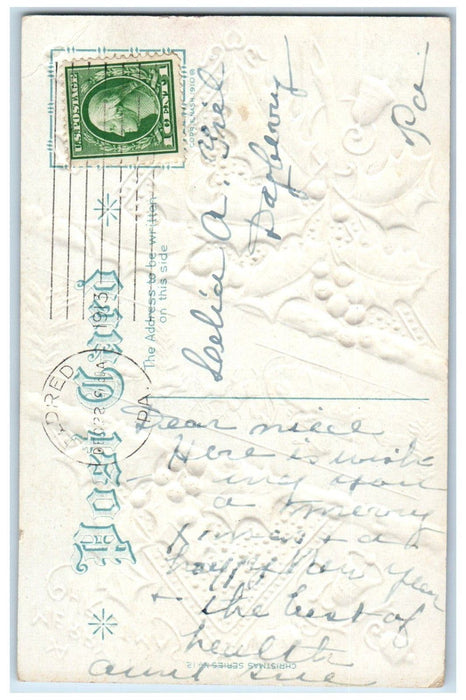 Post Card
The Address to be written
on this side
COPYRIGHT 1910
U.S. POSTAGE
1 CENT 1
ELDRED
DEC 22
1913
PA.
A.
Pa
Dear niece
Here is wish
ing you
a merry
Xmas & a
happy New Year
& the best of
health
aunt Sue
CHRISTMAS SERIES Nº 12